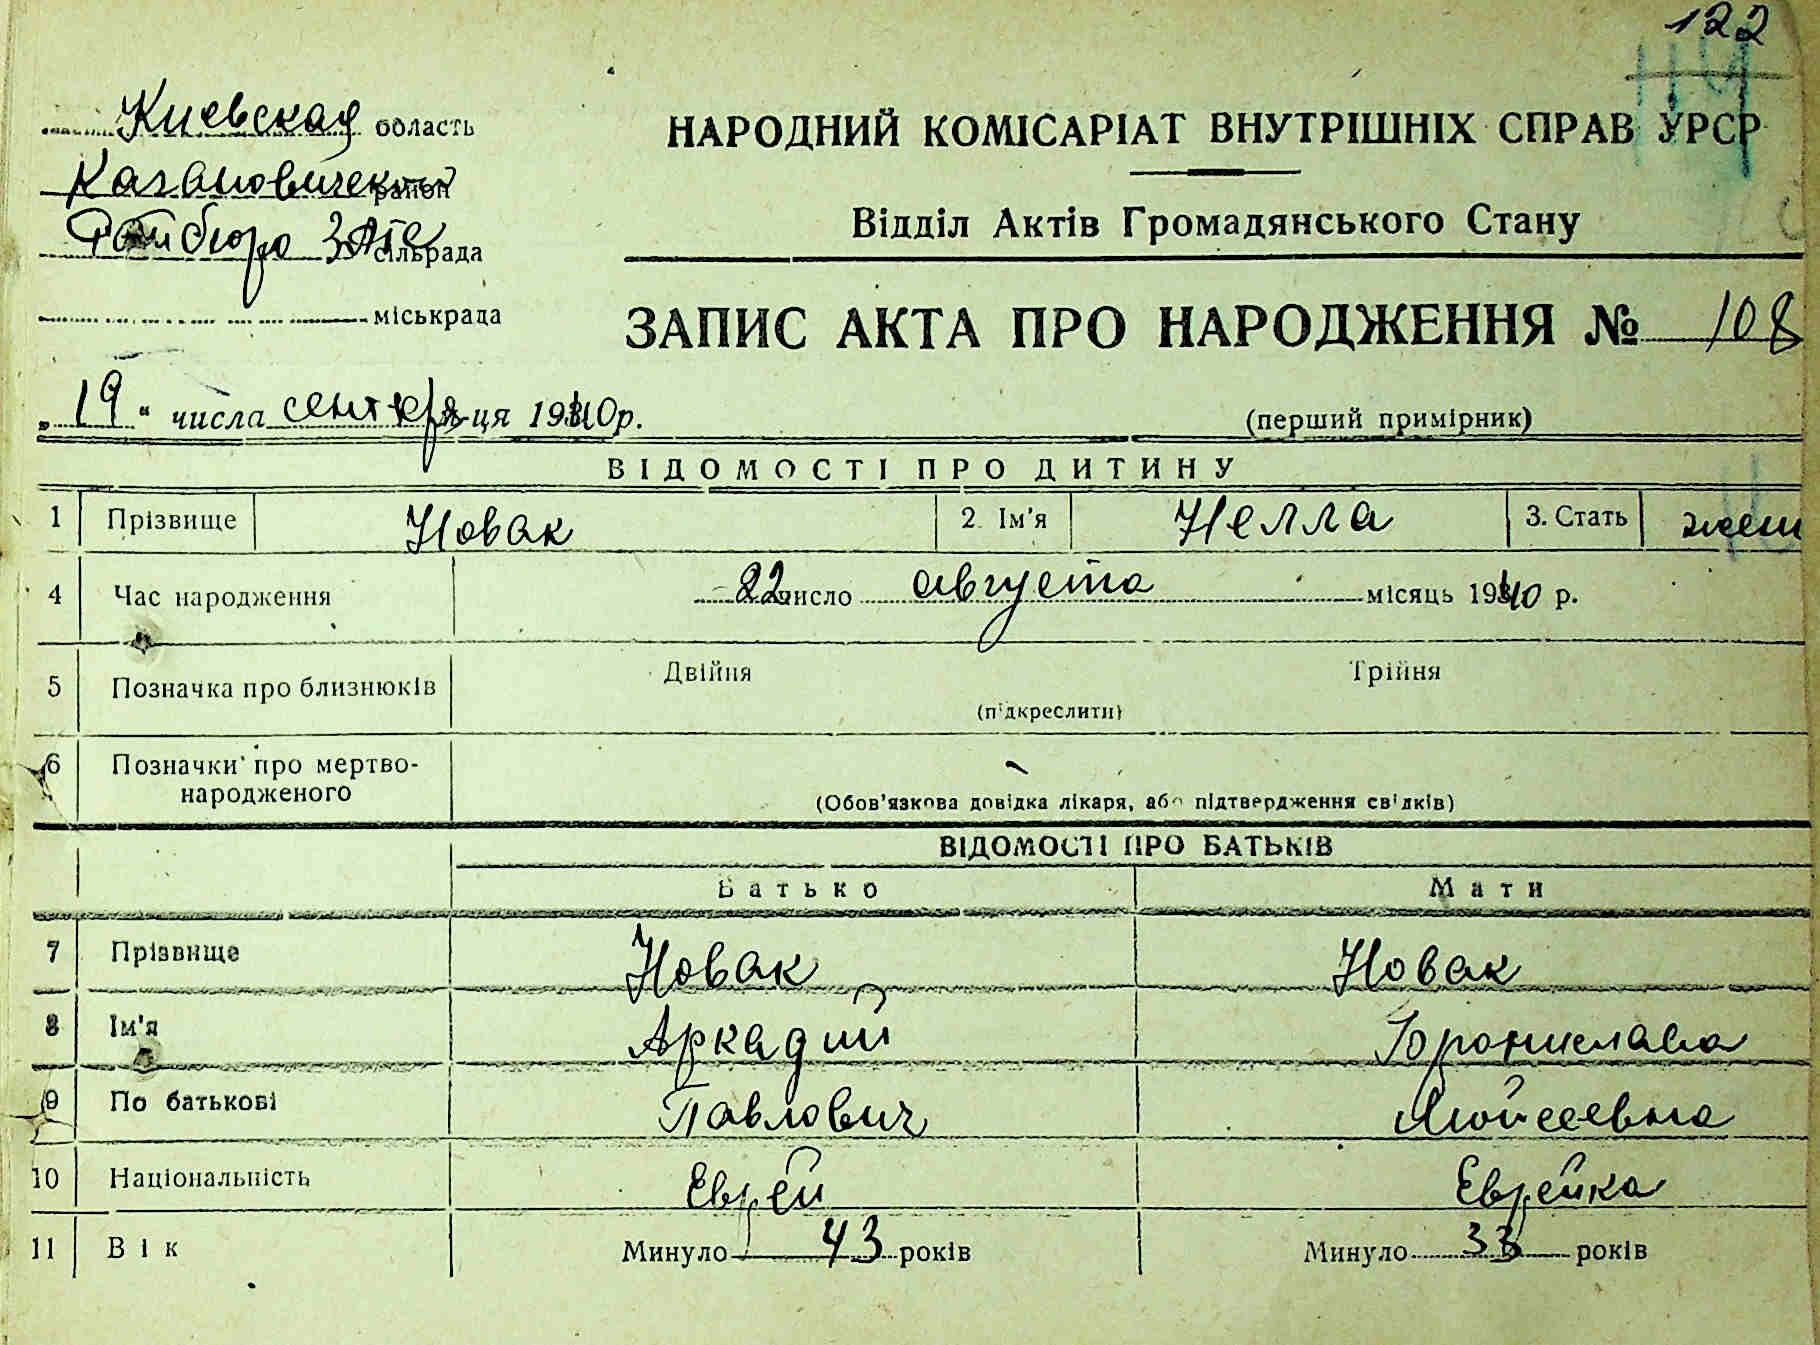 122
119
Киевская область
Кагановический район
Райбюро ЗАГС сільрада
міськрада
НАРОДНИЙ КОМІСАРІАТ ВНУТРІШНІХ СПРАВ УРСР
Відділ Актів Громадянського Стану
ЗАПИС АКТА ПРО НАРОДЖЕННЯ № 108
„19“ числа сентября-ця 1940 р.
(перший примірник)
ВІДОМОСТІ ПРО ДИТИНУ
1 Прізвище Новак 2. Ім'я Нелла 3. Стать жен
4 Час народження 22 число августа місяць 1940 р.
5 Позначка про близнюків Двійня Трійня
(підкреслити)
6 Позначки про мертво-
народженого
(Обов'язкова довідка лікаря, або підтвердження свідків)
ВІДОМОСТІ ПРО БАТЬКІВ
Батько Мати
7 Прізвище Новак Новак
8 Ім'я Аркадий Бронислава
9 По батькові Павлович Мойсеевна
10 Національність Еврей Еврейка
11 Вік Минуло 43 років Минуло 33 років